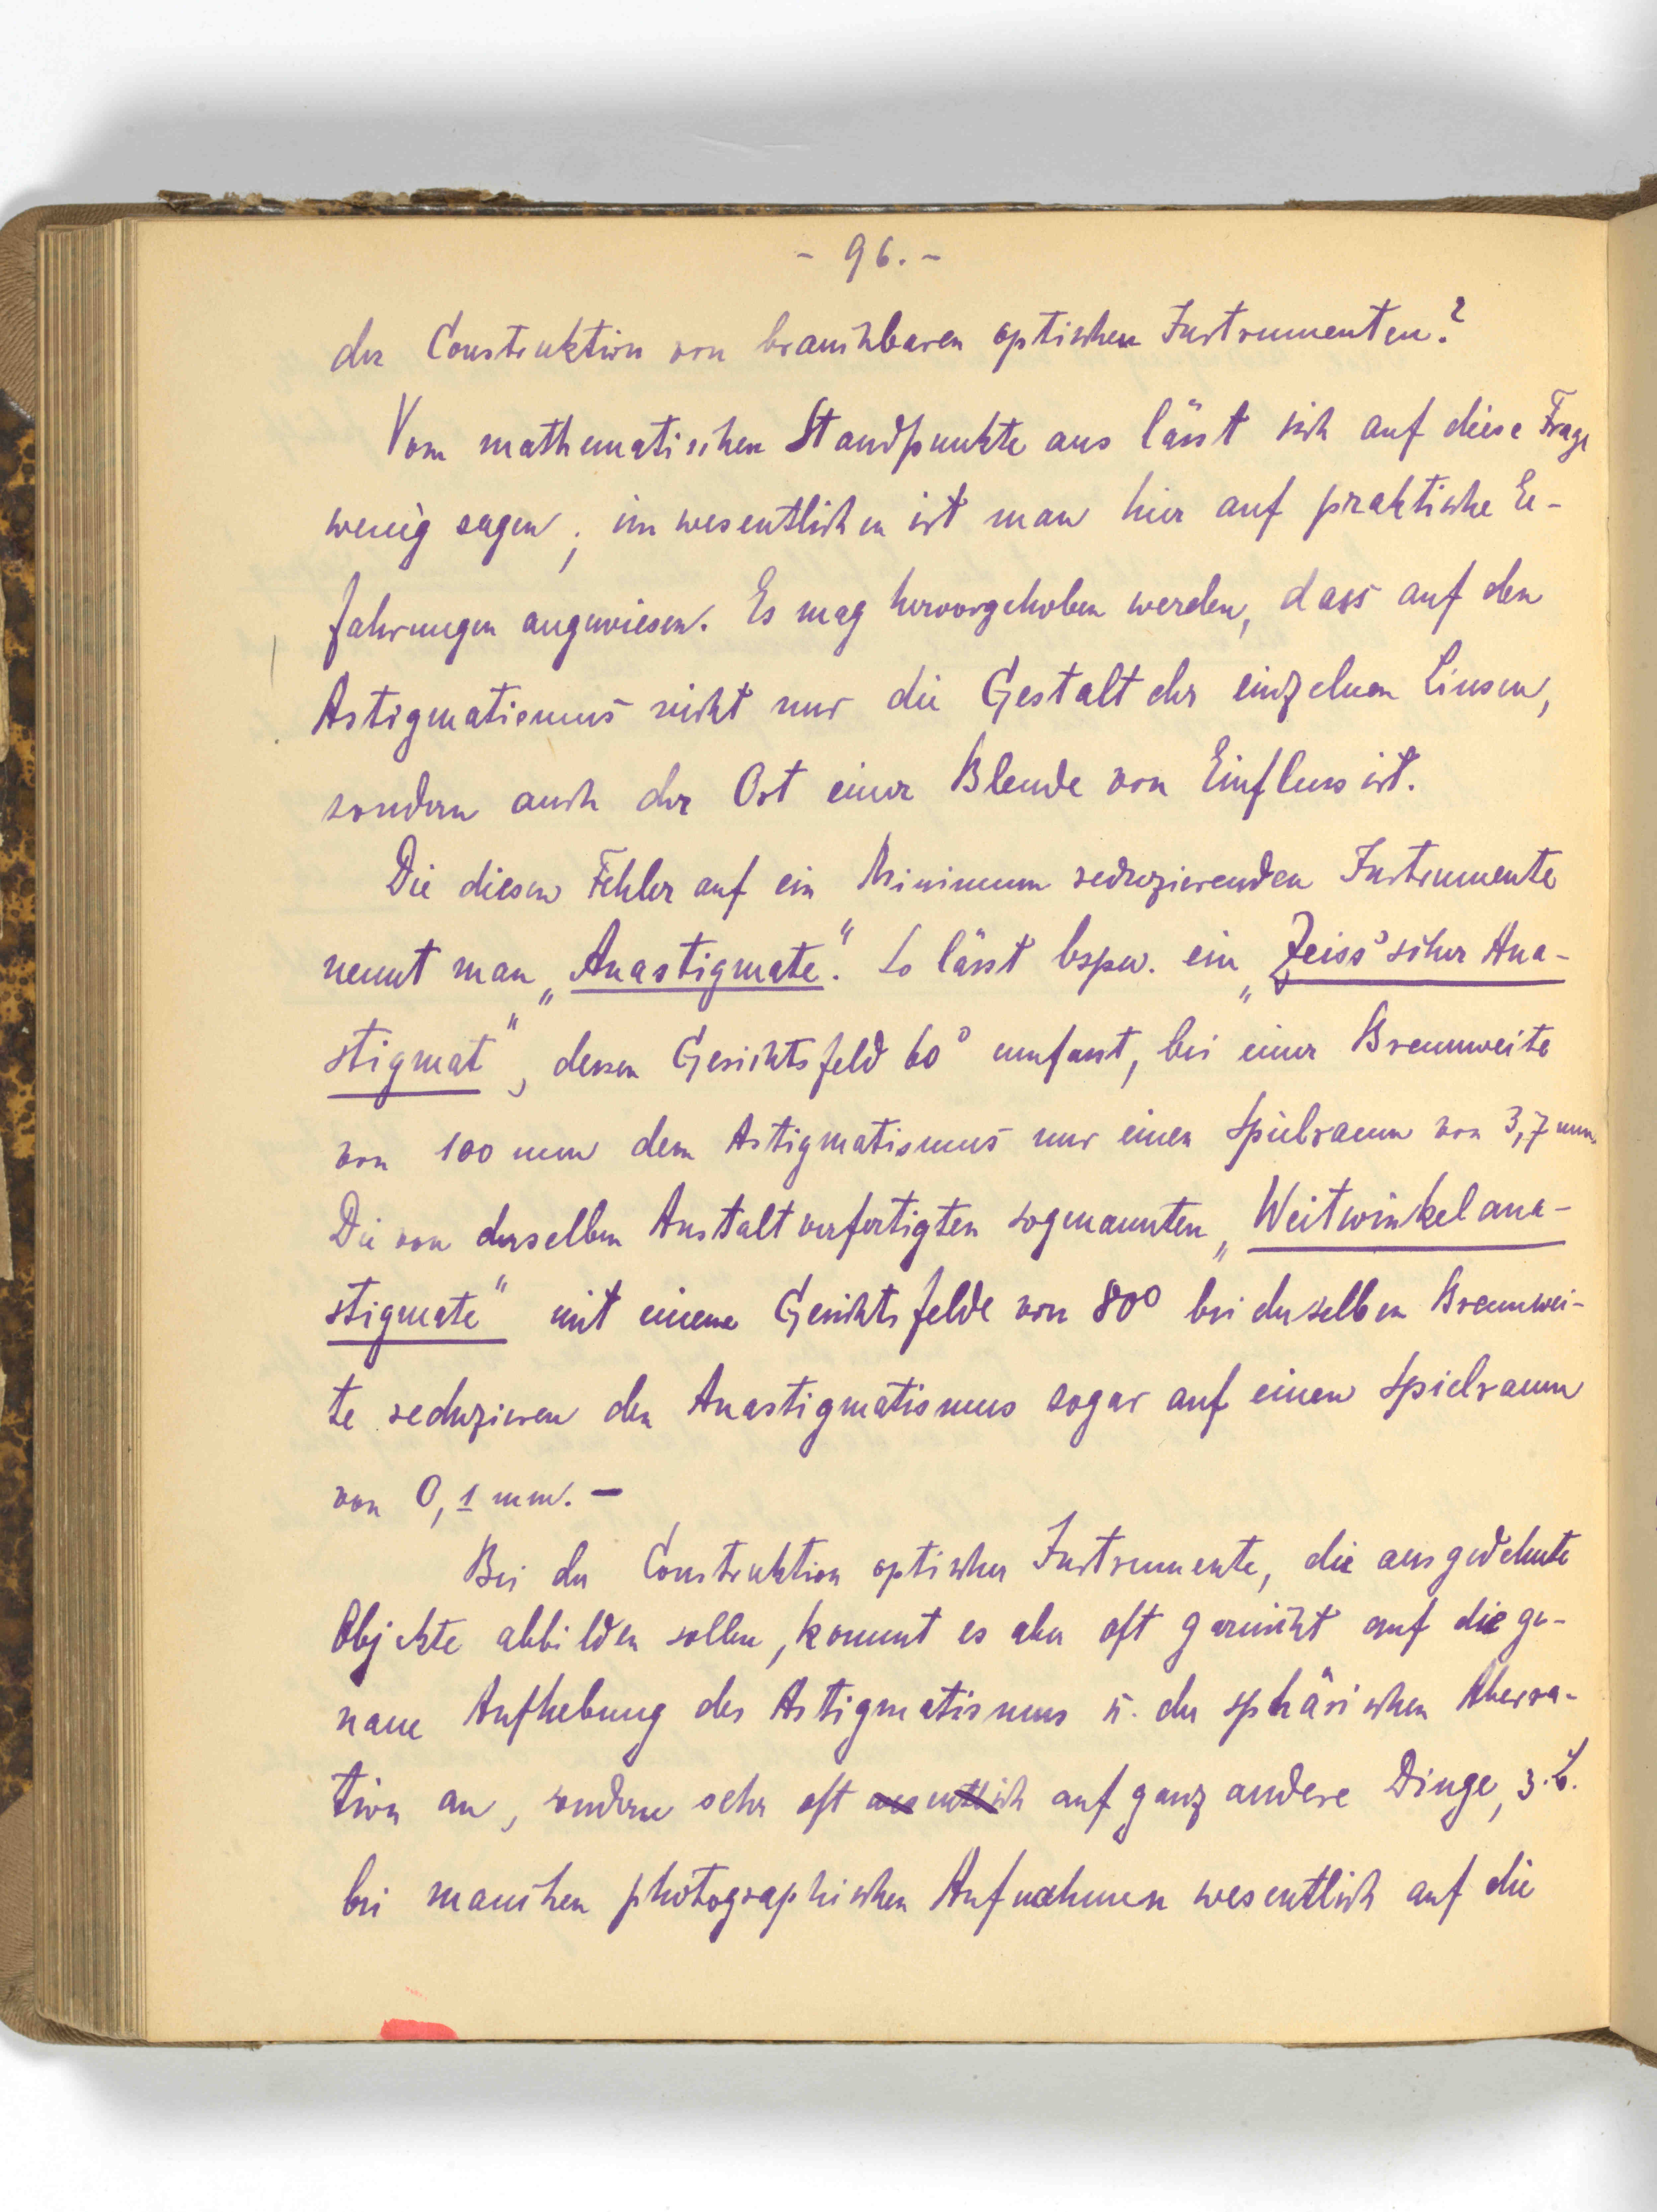 - 96. -
der Construktion von brauchbaren optischen Instrumenten?
Vom mathematischen Standpunkte aus lässt sich auf diese Frage
wenig sagen; im wesentlichen ist man hier auf praktische Er-
fahrungen angewiesen. Es mag hervorgehoben werden, dass auf den
Astigmatismus nicht nur die Gestalt der einzelnen Linsen,
sondern auch der Ort einer Blende von Einfluss ist.
Die diesen Fehler auf ein Minimum reduzierenden Instrumente
nennt man „Anastigmate“. So lässt bspw. ein „Zeiss'scher Ana-
stigmat“, dessen Gesichtsfeld 60° umfasst, bei einer Brennweite
von 100 mm dem Astigmatismus nur einen Spielraum von 3,7 mm.
Die von derselben Anstalt verfertigten sogenannten „Weitwinkelana-
stigmate“ mit einem Gesichtsfelde von 80° bei derselben Brennwei-
te reduzieren den Anastigmatismus sogar auf einen Spielraum
von 0,1 mm. —
Bei der Construktion optischer Instrumente, die ausgedehnte
Objekte abbilden sollen, kommt es aber oft garnicht auf die ge-
naue Aufhebung des Astigmatismus u. der sphärischen Aberra-
tion an, sondern sehr oft wesentlich auf ganz andere Dinge, z. B.
bei manchen photographischen Aufnahmen wesentlich auf die